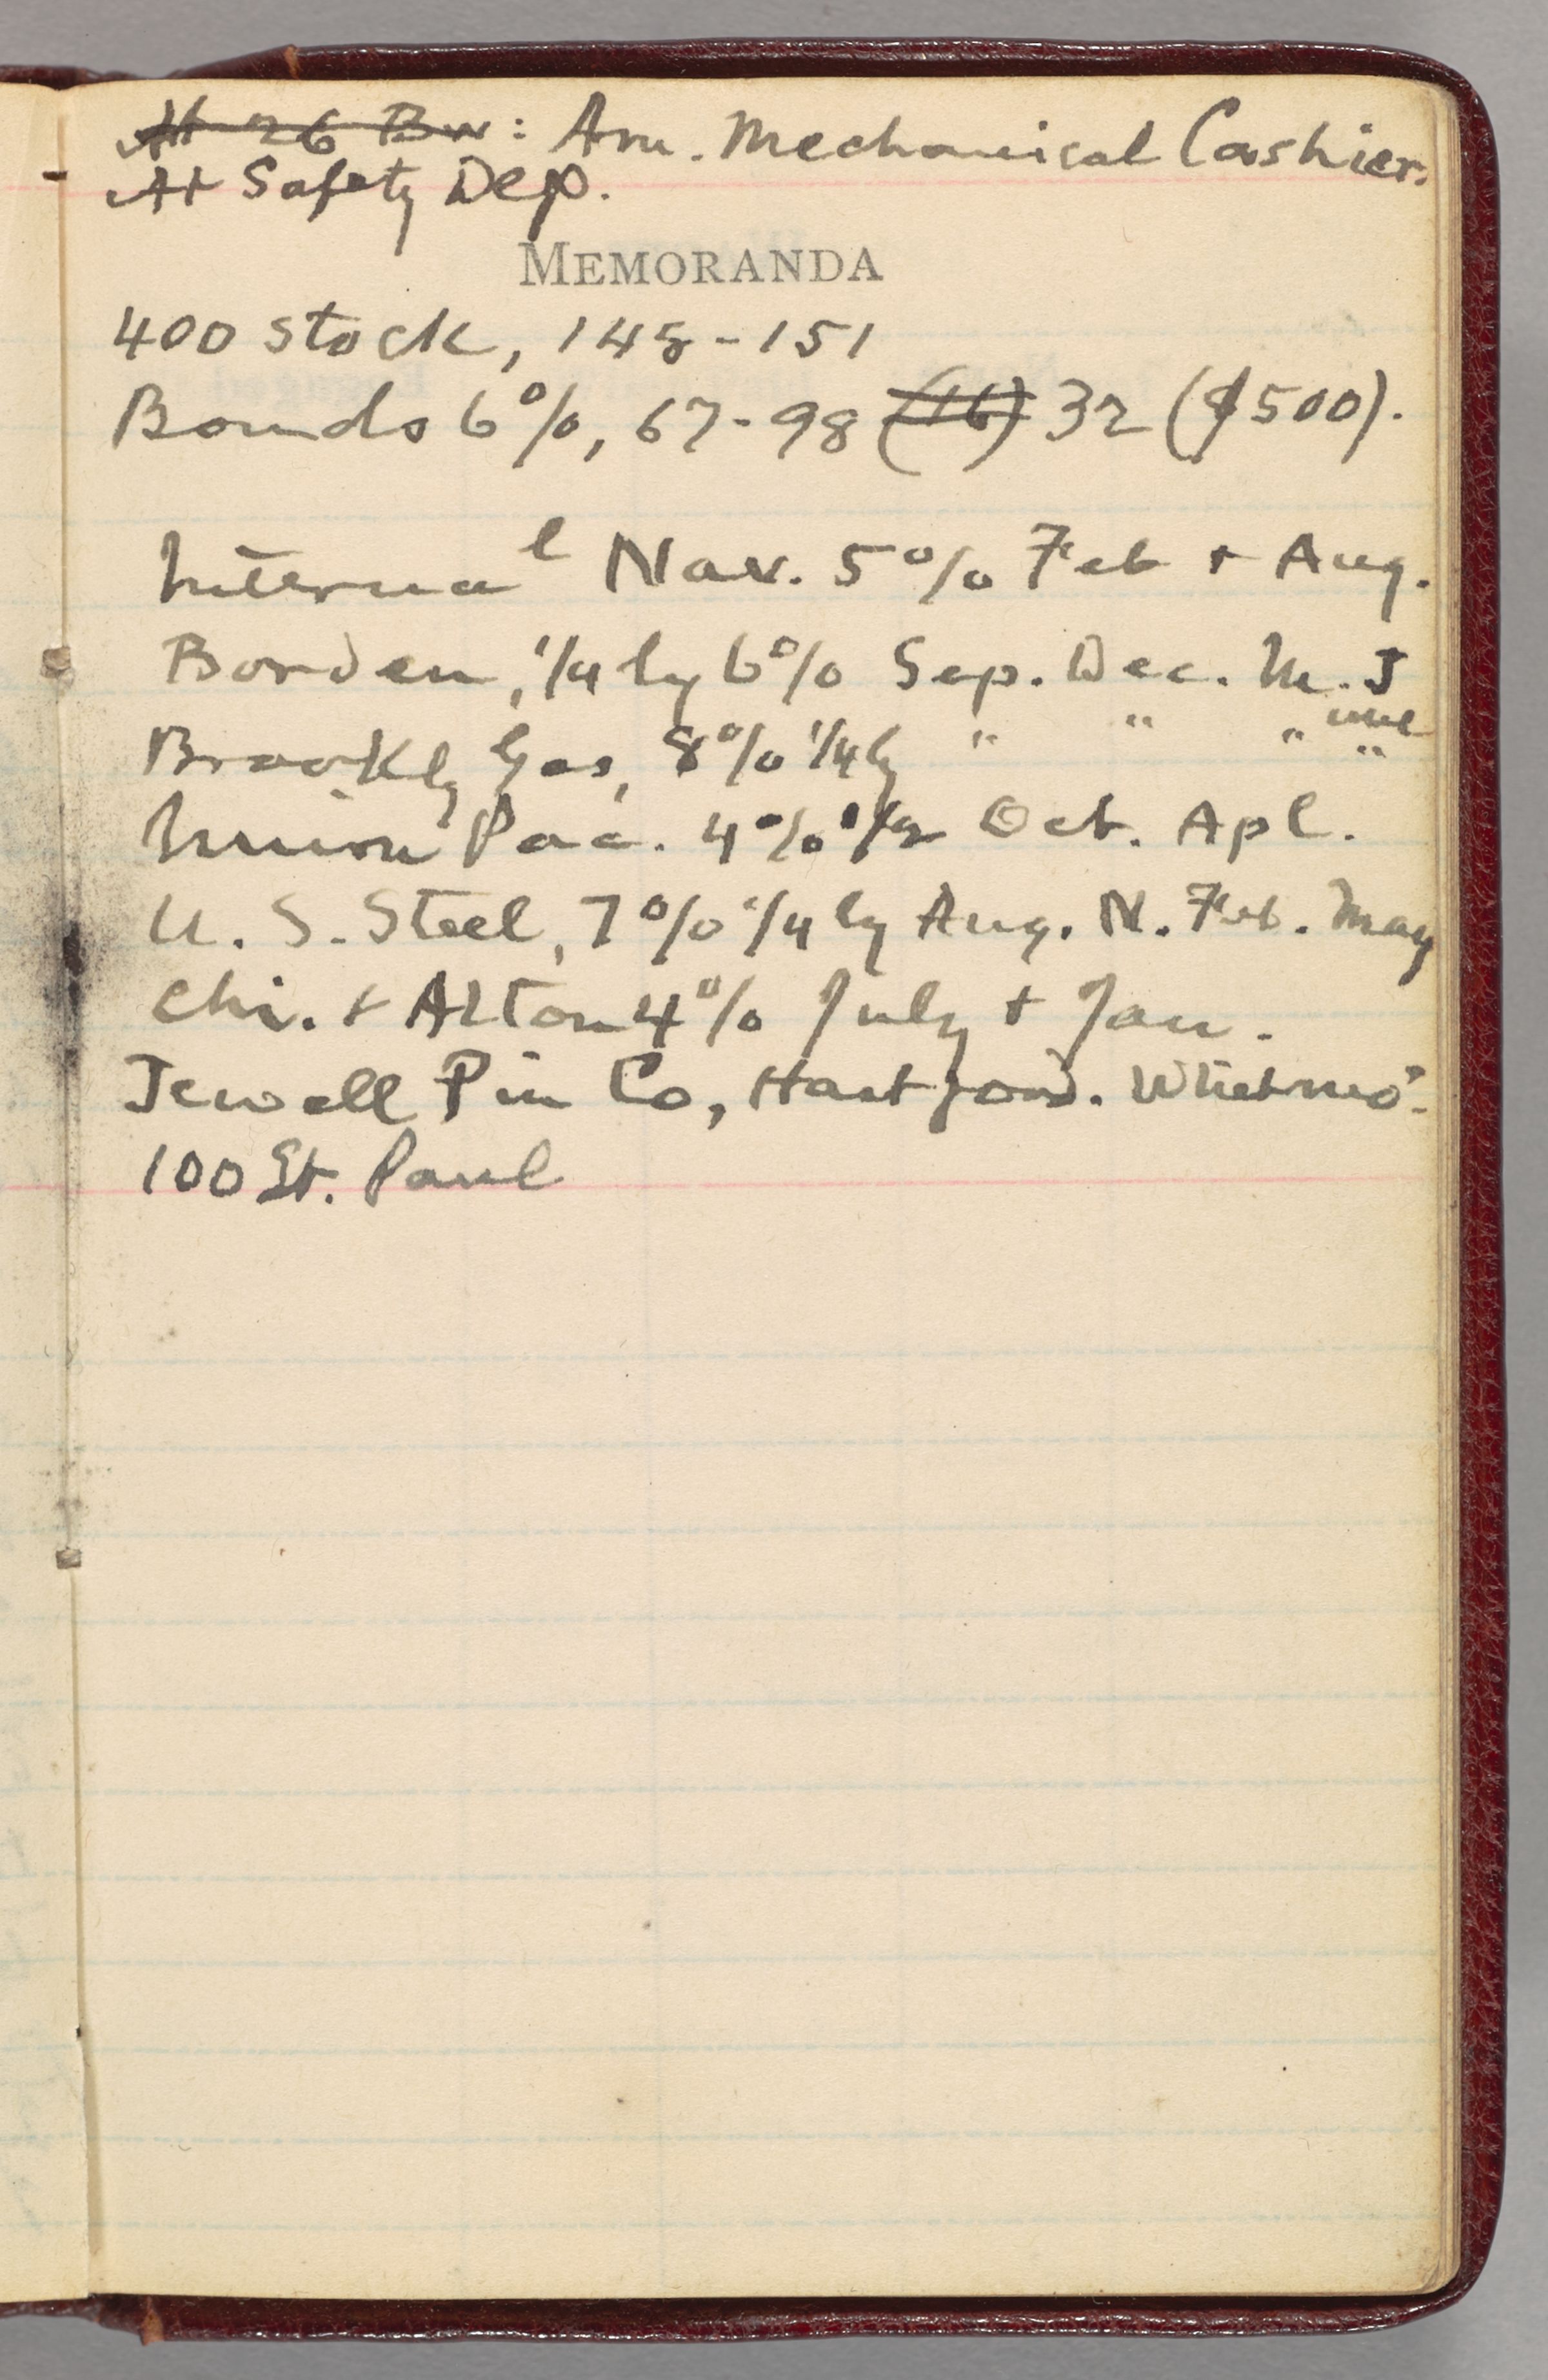 At 26 Bw: Am. Mechanical Cashier.
At Safety Dep.
MEMORANDA
400 stock, 148-151
Bonds 6%, 67-98 (16) 32 ($500).
Internal Nav. 5% Feb + Aug.
Borden, 1/4ly 6% Sep. Dec. M. June
Brookly Gas, 8% 1/4ly " " " "
Union Pac. 4% 1/2 Oct. Apl.
U. S. Steel, 7% 1/4ly Aug. N. Feb. May
Chi. + Alton 4% July + Jan.
Jewell Pin Co, Hartford.
100 St. Paul